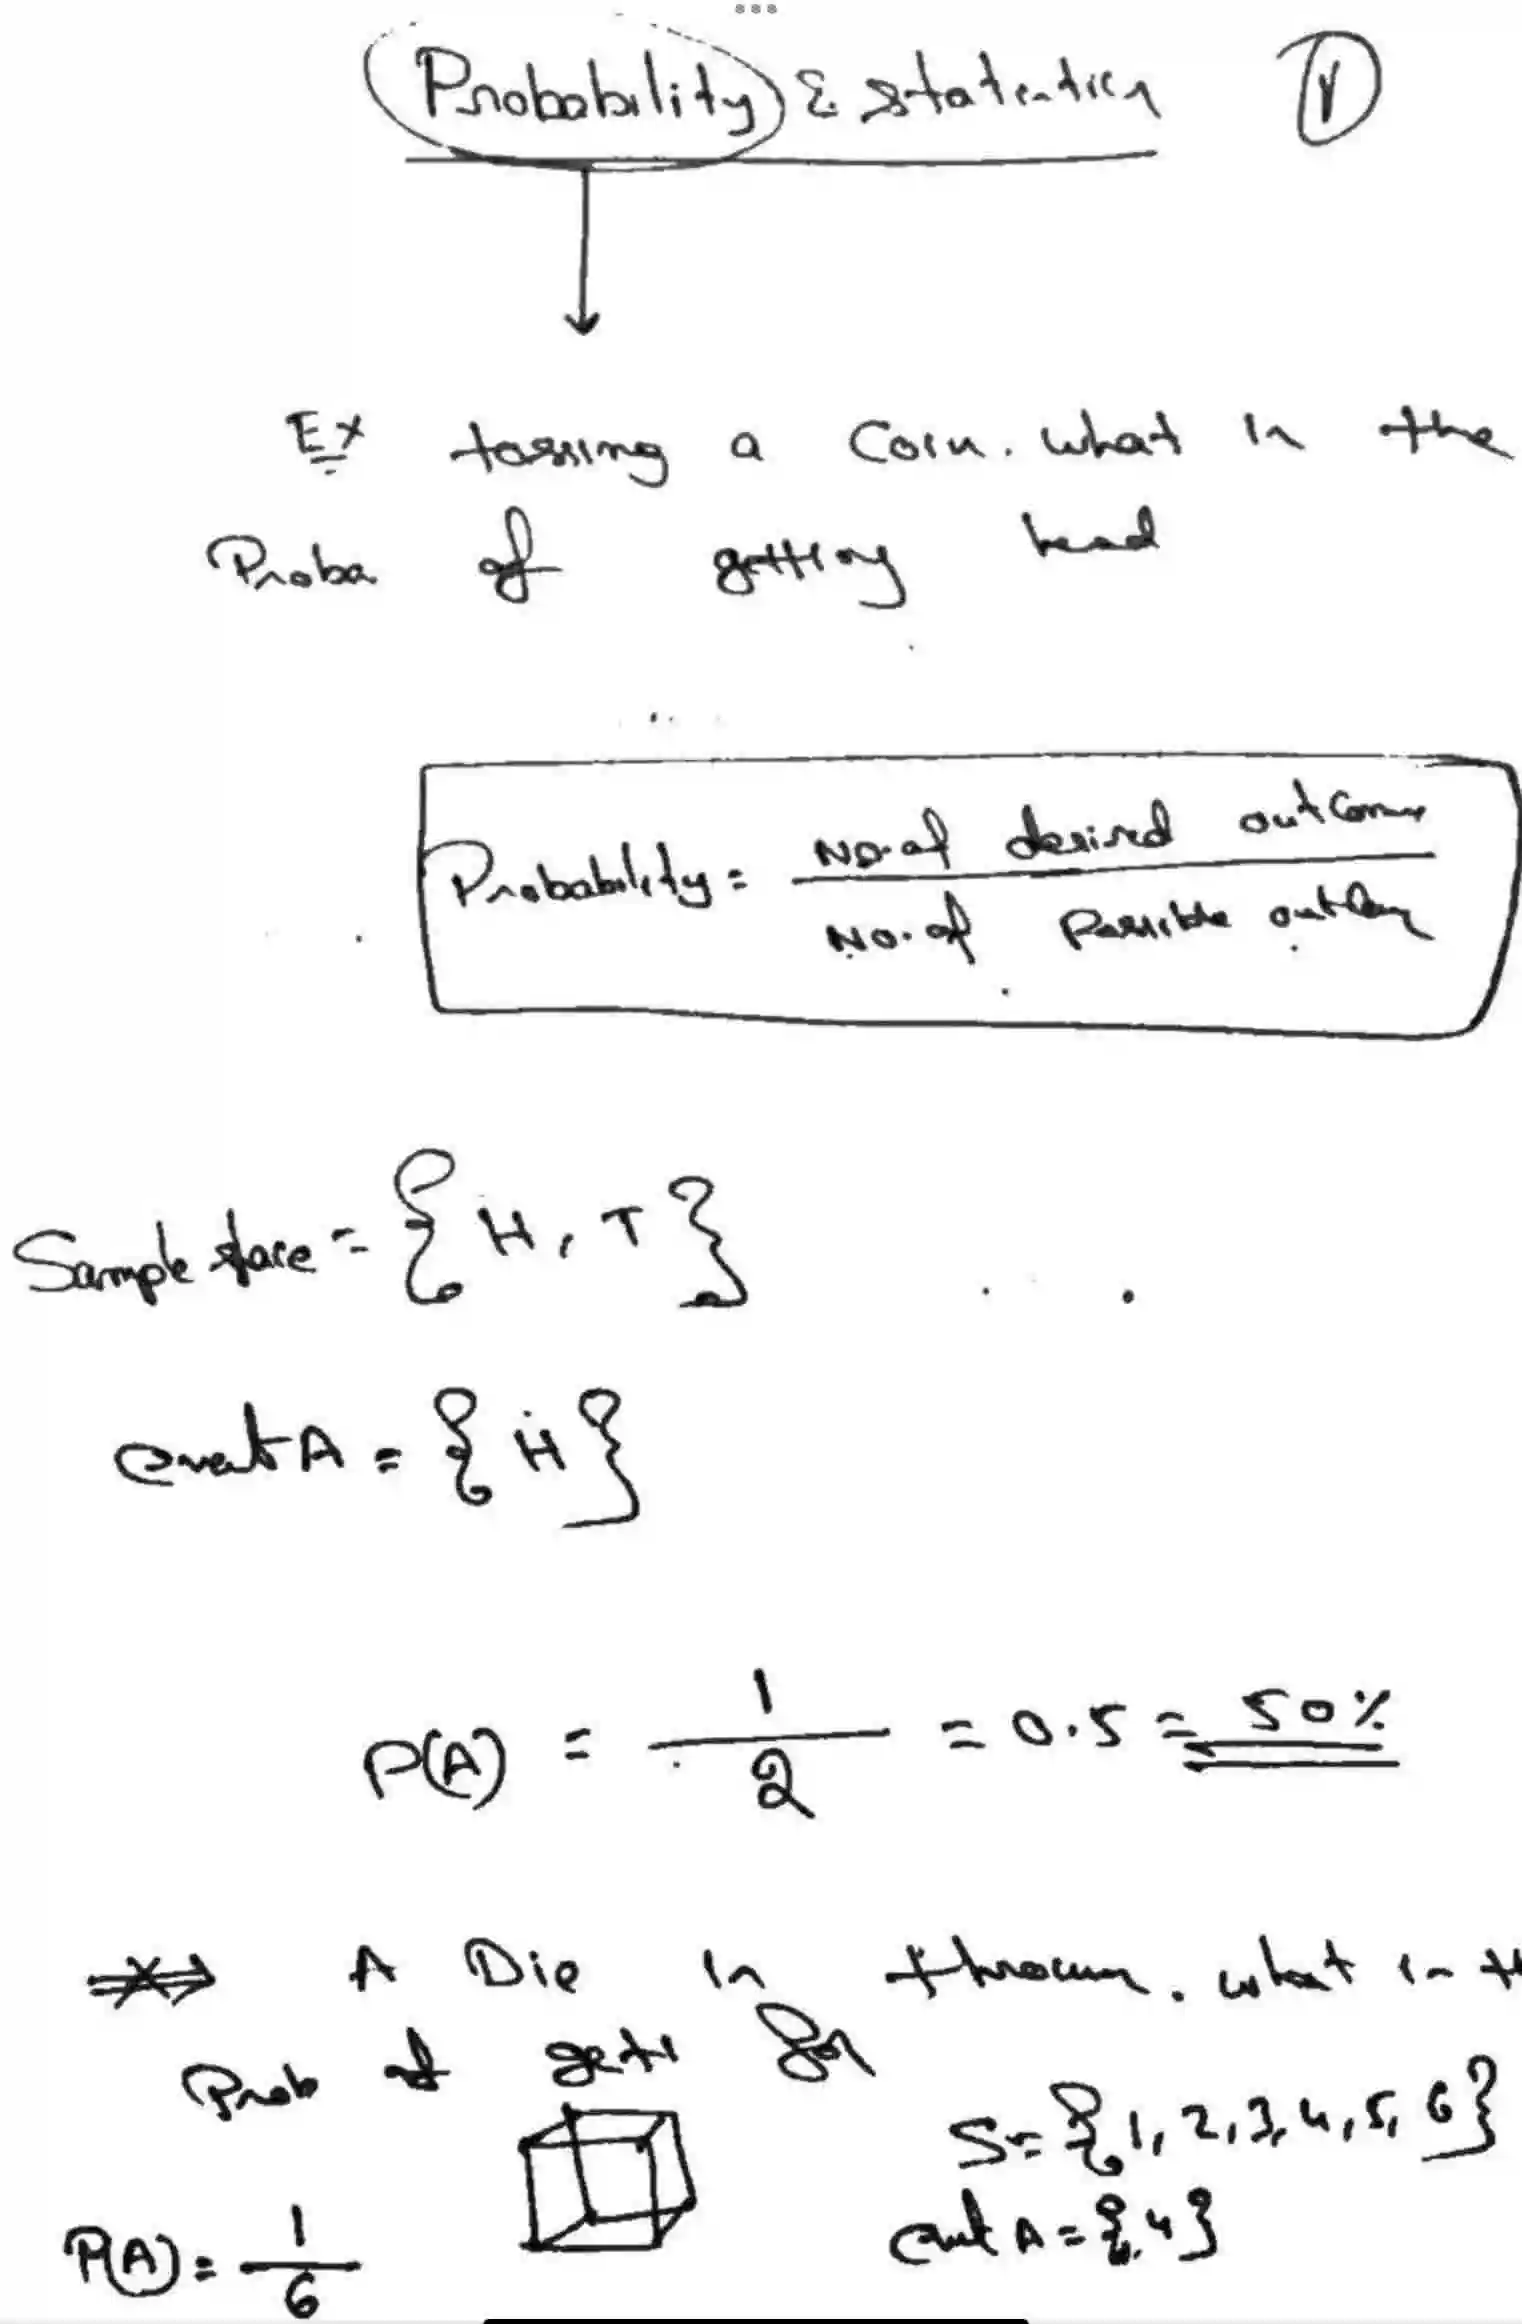 Probability & Statistics
Ex tossing a Coin. what is the
Proba of getting head
Probability = No. of desired outcomes
No. of Possible outcomes
Sample space = { H, T }
event A = { H }
P(A) = 1/2 = 0.5 = 50%
A Die is thrown. what is th
Prob of gett four
S = { 1, 2, 3, 4, 5, 6 }
event A = { 4 }
P(A) = 1/6